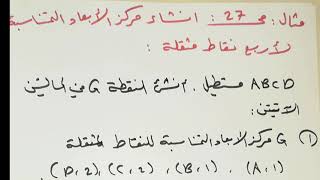 مثال: 27 صـ: انشاء مركز الأبعاد المتناسبة
لأربع نقاط مثقلة :
ABCD مستطيل . أنشئ النقطة G في الحالتين
الآتيتين:
① G مركز الأبعاد المتناسبة للنقاط المثقلة
(D,2), (C,2), (B,1), (A,1)